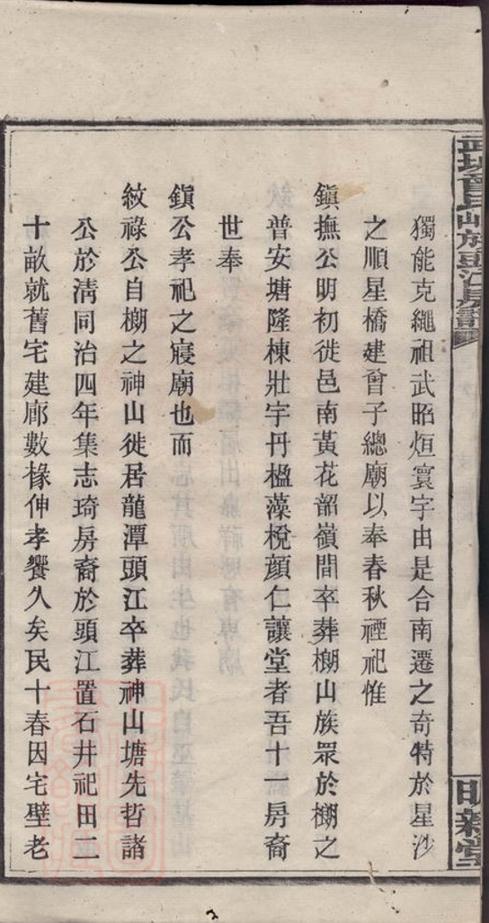 獨能克繩祖武昭烜寰宇由是合南遷之奇特於星沙
之順星橋建曾子總廟以奉春秋禋祀惟
鎮撫公明初徙邑南黃花韶嶺間卒葬棚山族眾於棚之
普安塘隆棟壯宇丹楹藻梲顏仁讓堂者吾十一房裔
世奉
鎮公孝祀之寢廟也而
紋祿公自棚之神山徙居龍潭頭江卒葬神山塘先哲諸
公於清同治四年集志琦房裔於頭江置石井祀田二
十畝就舊宅建廊數椽伸孝饗久矣民十春因宅壁老